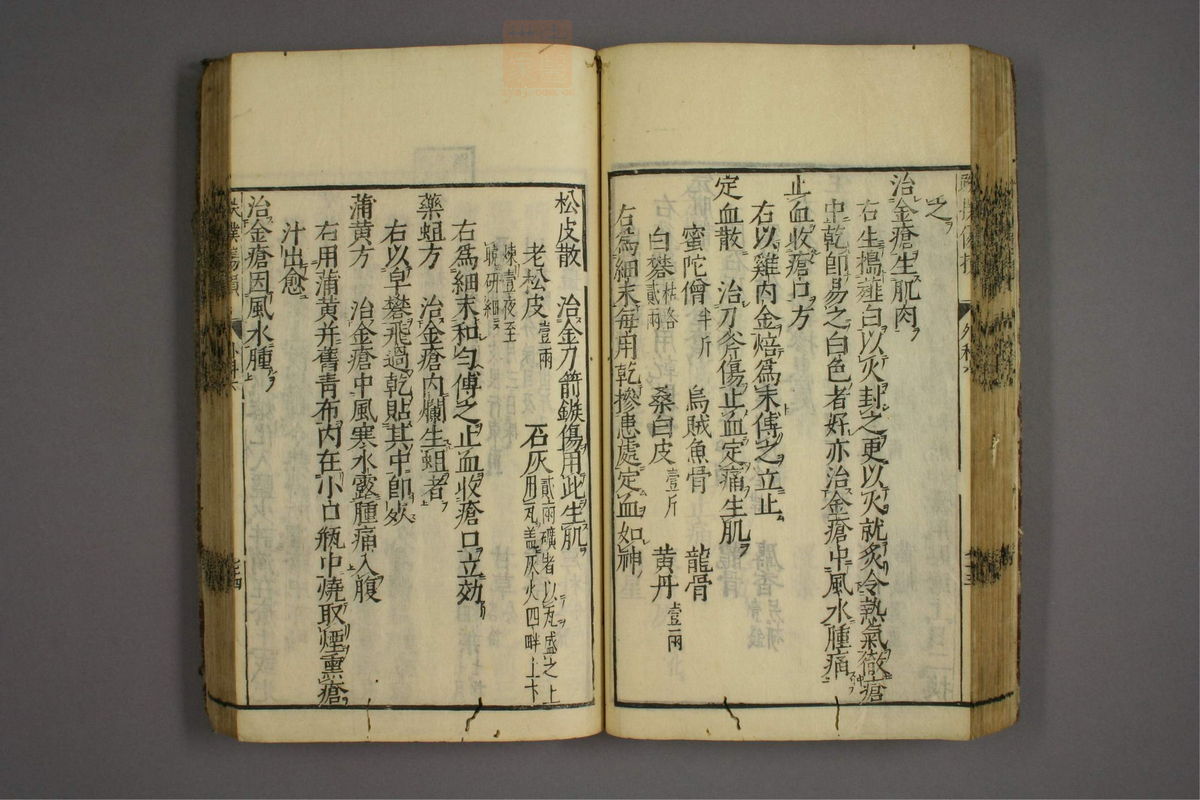 之
治金瘡生肌肉
右生搗薤白以火封之更以火就炙令熱氣徹瘡
中乾即易之白色者好亦治金瘡中風水腫痛
止血收瘡口方
右以雞內金焙爲末傅之立止
定血散　治刀斧傷止血定痛生肌
蜜陀僧半斤　烏賊魚骨　龍骨
白礬枯各貳兩　桑白皮壹斤　黄丹壹兩
右爲細末每用乾摻患處定血如神
松皮散　治金刀箭鏃傷用此生肌
老松皮壹兩　石灰貳兩礦者以瓦盛之上用瓦盖灰火四畔上下
煉壹夜至曉研細
右爲細末和勻傅之止血收瘡口立効
藥蛆方　治金瘡內爛生蛆者
右以皁礬飛過乾貼其中即㱠
蒲黄方　治金瘡中風寒水露腫痛入腹
右用蒲黄并舊青布內在小口瓶中燒取煙熏瘡
汁出愈
治金瘡因風水腫